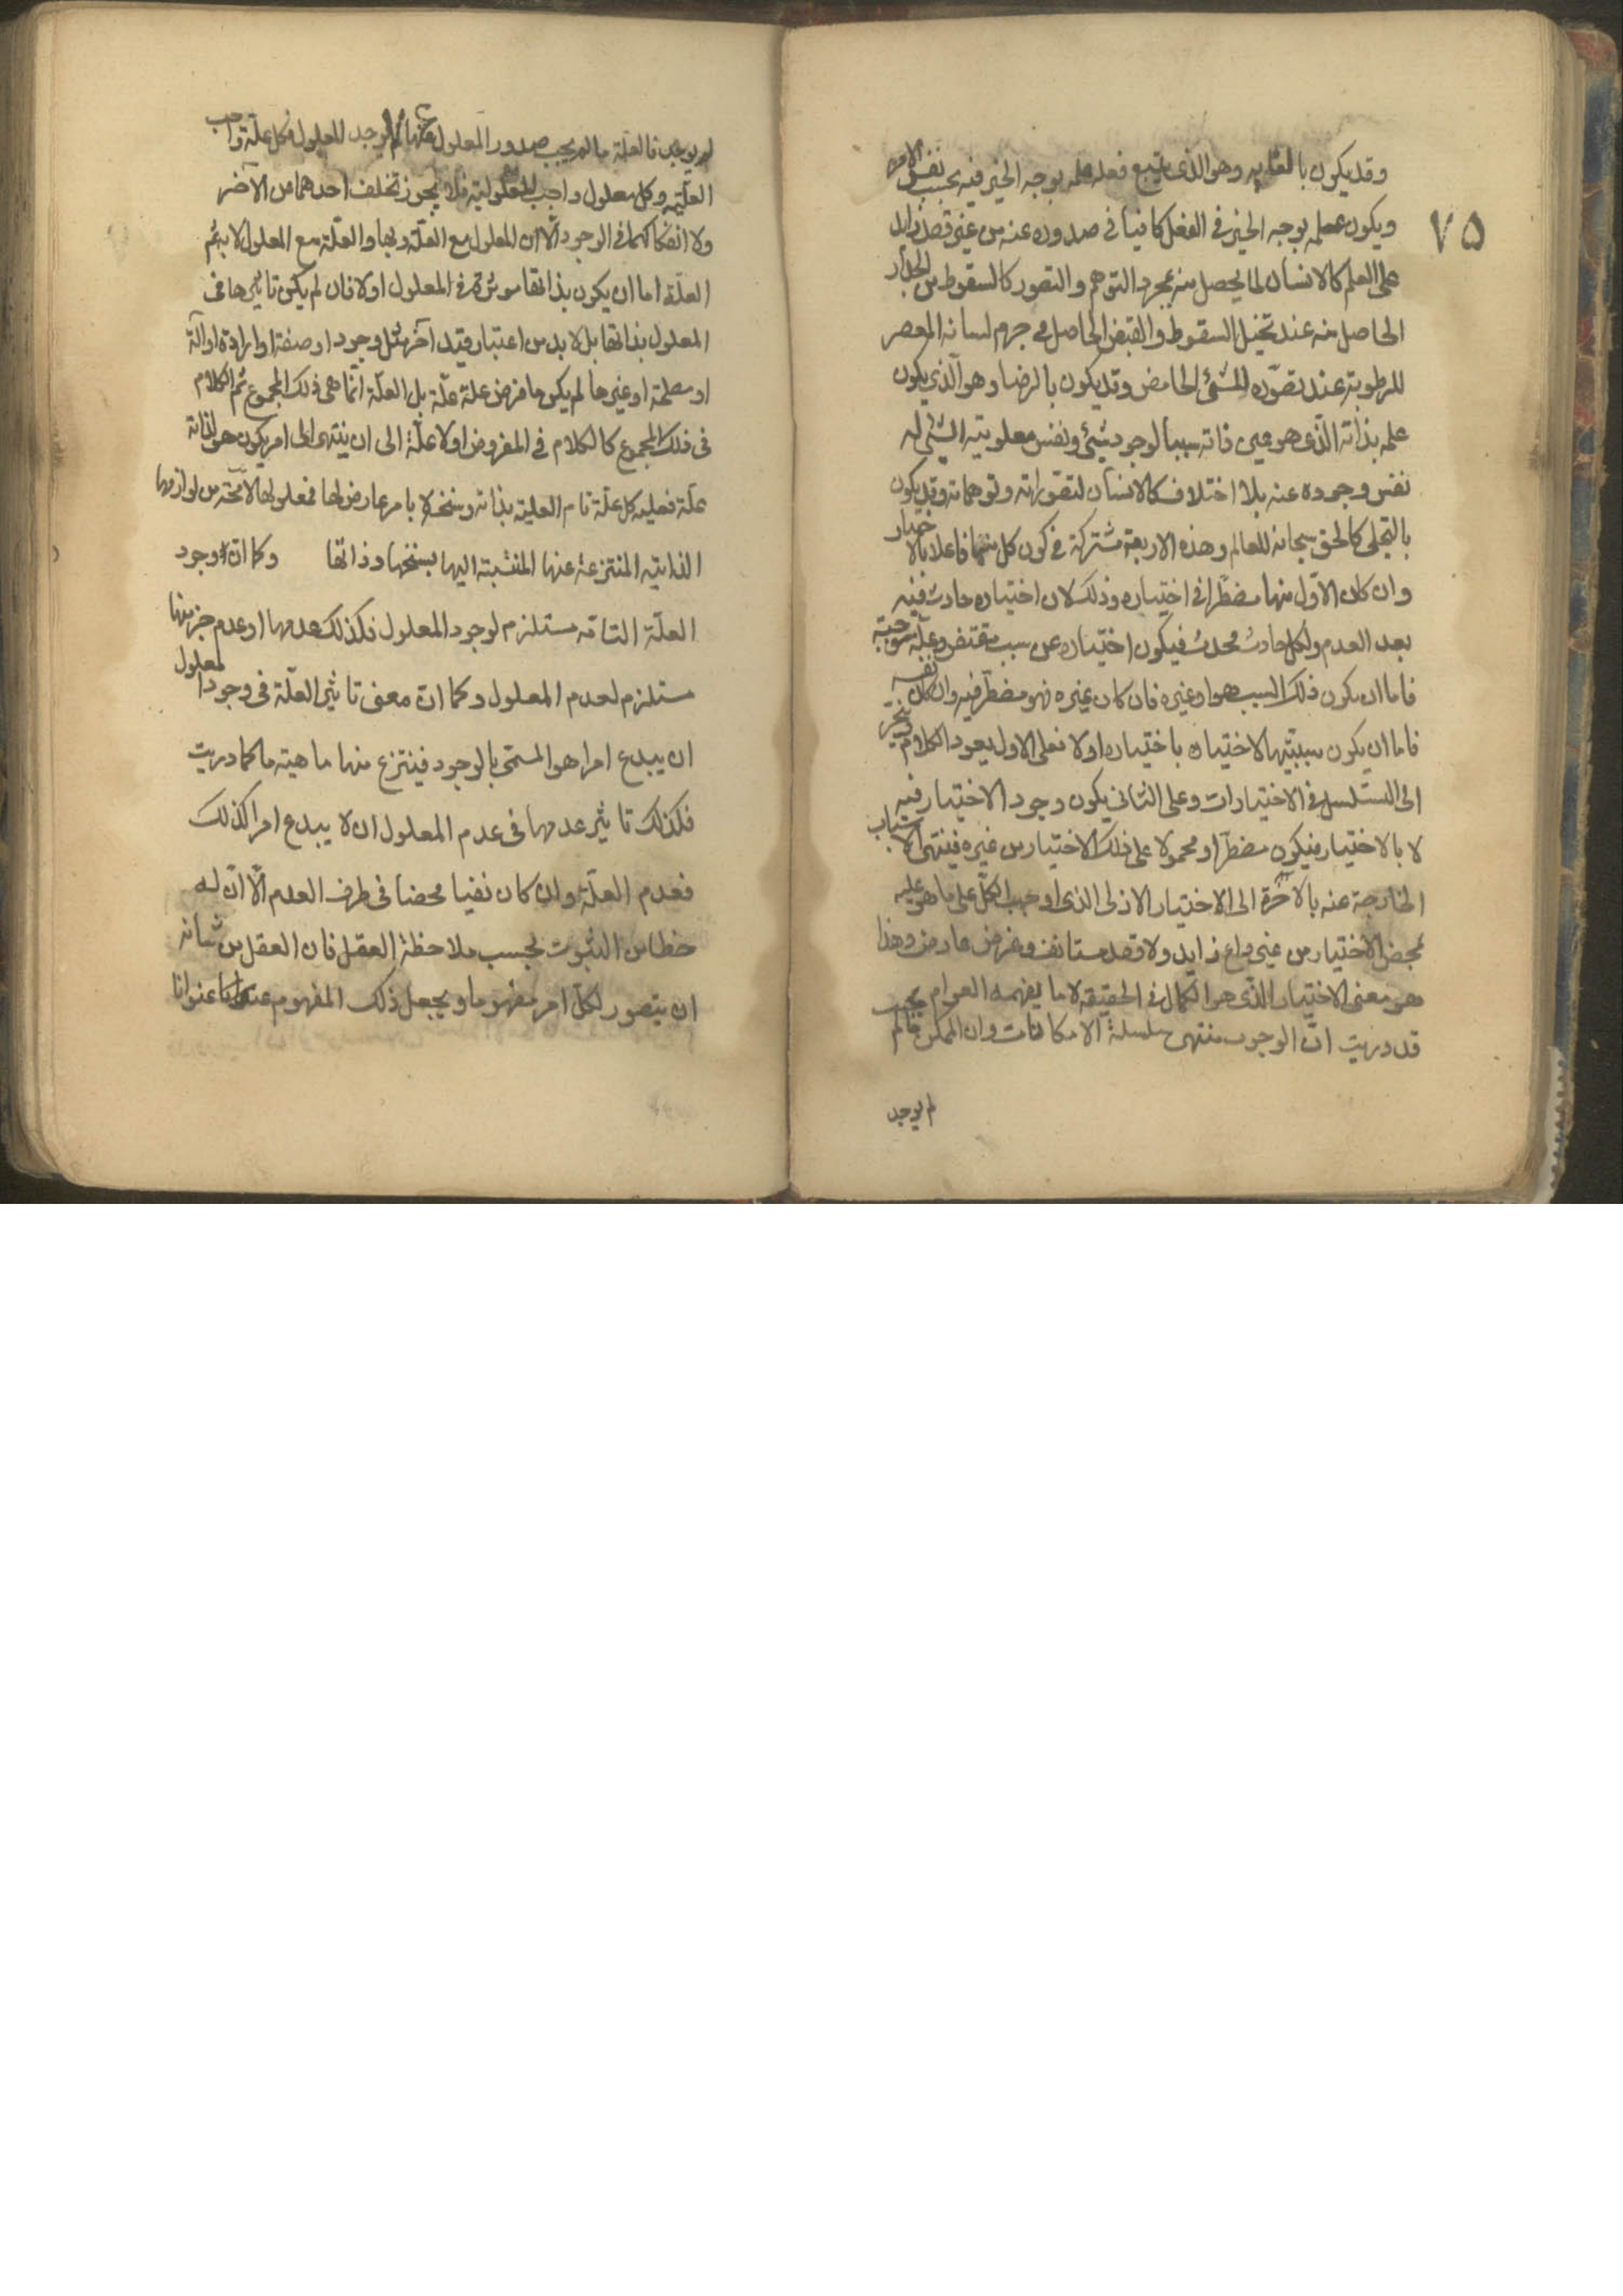 ٧٥
وقد يكون بالعناية وهو الذي يتبع فعله علمه بوجه الخير فيه بحسب نفس الامر
ويكون علمه بوجه الخير في الفعل كافيا في صدوره عنه من غير قصد زايد
على العلم كالانسان لما يحصل منه بمجرد التوهم والتصور كالسقوط من الجدار
الحاصل منه عند تخيل السقوط والقبض الحاصل في جرم لسانه المعصر
للرطوبة عند تصوره للشئ الحامض وقد يكون بالرضا وهو الذي يكون
علمه بذاته الذي هو عين ذاته سببا لوجود شئ ونفس معلومية الشئ له
نفس وجوده عنه بلا اختلاف كالانسان لتصوراته وتوهماته وقد يكون
بالتجلي كالحق سبحانه للعالم وهذه الاربعة مشتركة في كون كل منها فاعلا بالاختيار
وان كان الاول منها مضطرا في اختياره وذلك لان اختياره حادث فيه
بعد العدم ولكل حادث محدث فيكون اختياره عن سبب مقتض وعلة موجبة
فاما ان يكون ذلك السبب هو او غيره فان كان غيره فهو مضطر فيه وان كان نفسه
فاما ان يكون سببيتها لاختياره باختياره اولا فعلى الاول يعود الكلام وينجر
الى التسلسل في الاختيارات وعلى الثاني يكون وجود الاختيار فيه
لا بالاختيار فيكون مضطرا ومحمولا على ذلك الاختيار من غيره فينتهى الى الاسباب
الخارجة عنه بالاخرة الى الاختيار الازلى الذي اوجب الكل على ما هو عليه
بمحض الاختيار من غير داع زايد ولا قصد مستانف وغرض عارض وهذا
هو معنى الاختيار الذي هو الكمال في الحقيقة لا ما يفهمه العوام
قد دريت ان الوجوب منتهى سلسلة الامكانات وان الممكن ما لم يجب
لم يوجد
لم يوجد فالعلة ما لم يجب صدور المعلول عنها لم يوجد المعلول فكل علة واجب
العلية وكل معلول واجب المعلولية فلا يجوز تخلف احدهما من الآخر
ولا انفكاكهما في الوجود الا ان المعلول مع العلة وبها والعلة مع المعلول لا به ثم
العلة اما ان يكون بذاتها موثرة في المعلول اولا فان لم يكن تاثيرها في
المعلول بذاتها بل لا بد من اعتبار قيد آخر مثل وجود او صفة او ارادة او آلة
او مصلحة او غيرها لم يكن ما فرض علة علة بل العلة انما هي ذلك المجموع ثم الكلام
في ذلك المجموع كالكلام في المفروض اولا علة الى ان ينتهى الى امر يكون هو لذاته
علة فعليه كل علة تام العلية بذاته وسنخه لا بامر عارض لها فمعلولها لا محة من لوازمها
الذاتية المنتزعة عنها المنتسبة اليها بسنخها وذاتها وكما ان وجود
العلة التامة مستلزم لوجود المعلول فكذلك عدمها او عدم جزء منها
مستلزم لعدم المعلول وكما ان معنى تاثير العلة في وجود المعلول
ان يبدع امرا هو المسمى بالوجود فينتزع منها ماهية ما كما دريت
فكذلك تاثير عدمها في عدم المعلول ان لا يبدع امرا كذلك
فعدم العلة وان كان نفيا محضا في ظرف العدم الا ان له
حظا من الثبوت بحسب ملاحظة العقل فان العقل من شانه
ان يتصور لكل امر مفهوما ويجعل ذلك المفهوم عنوانا